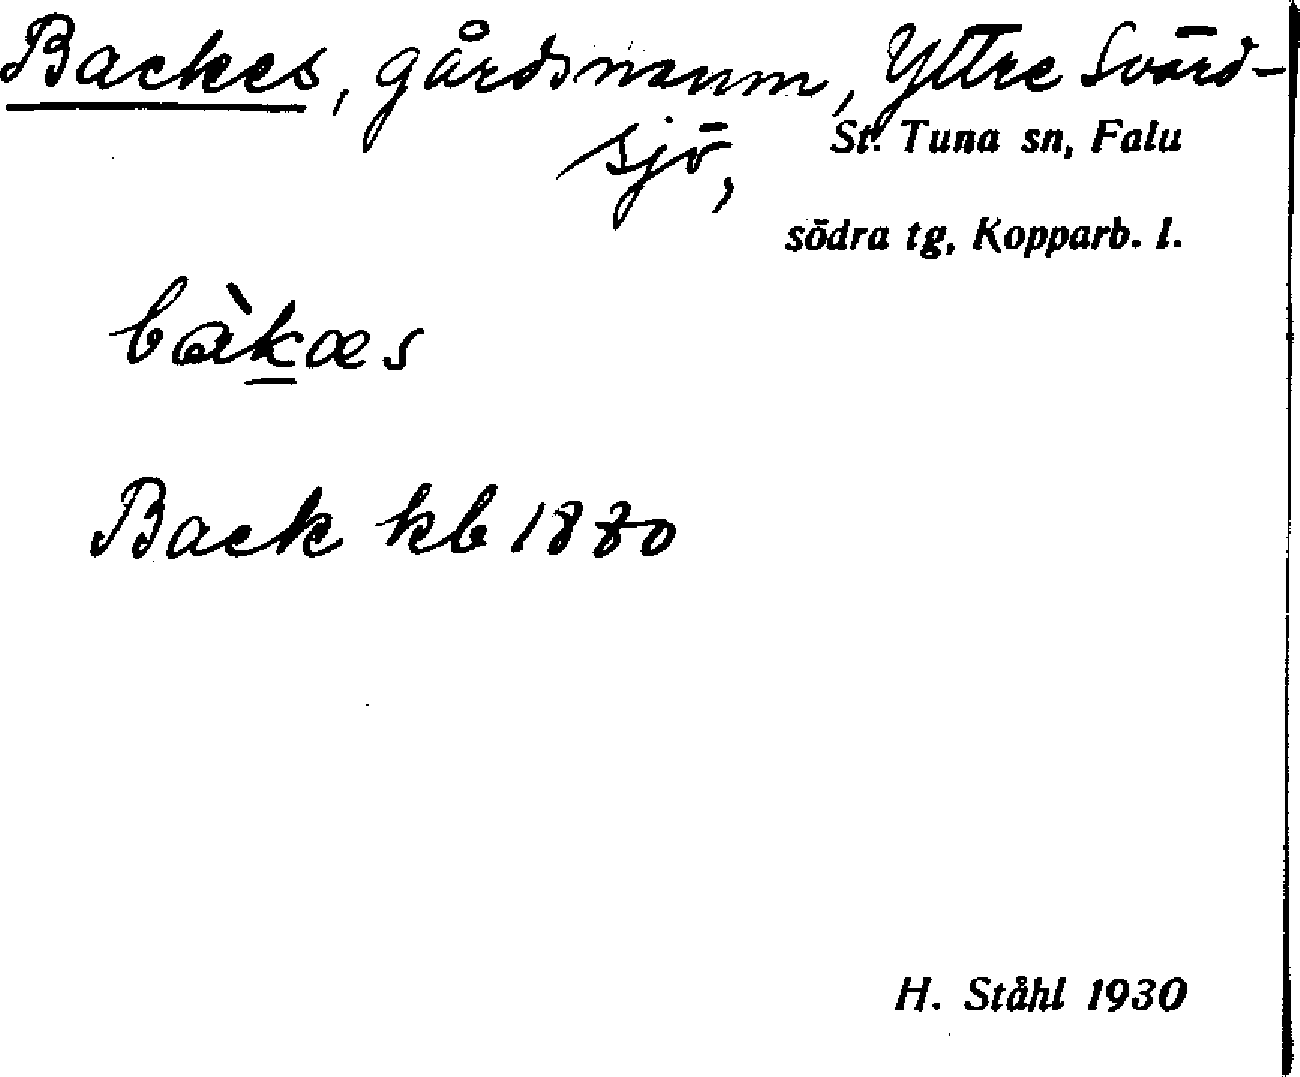 Backes, gårdsnamn, Yttre Svärd-
sjö,
St. Tuna sn, Falu
södra tg, Kopparb. l.
bàkæs
Back kb 1880
H. Ståhl 1930